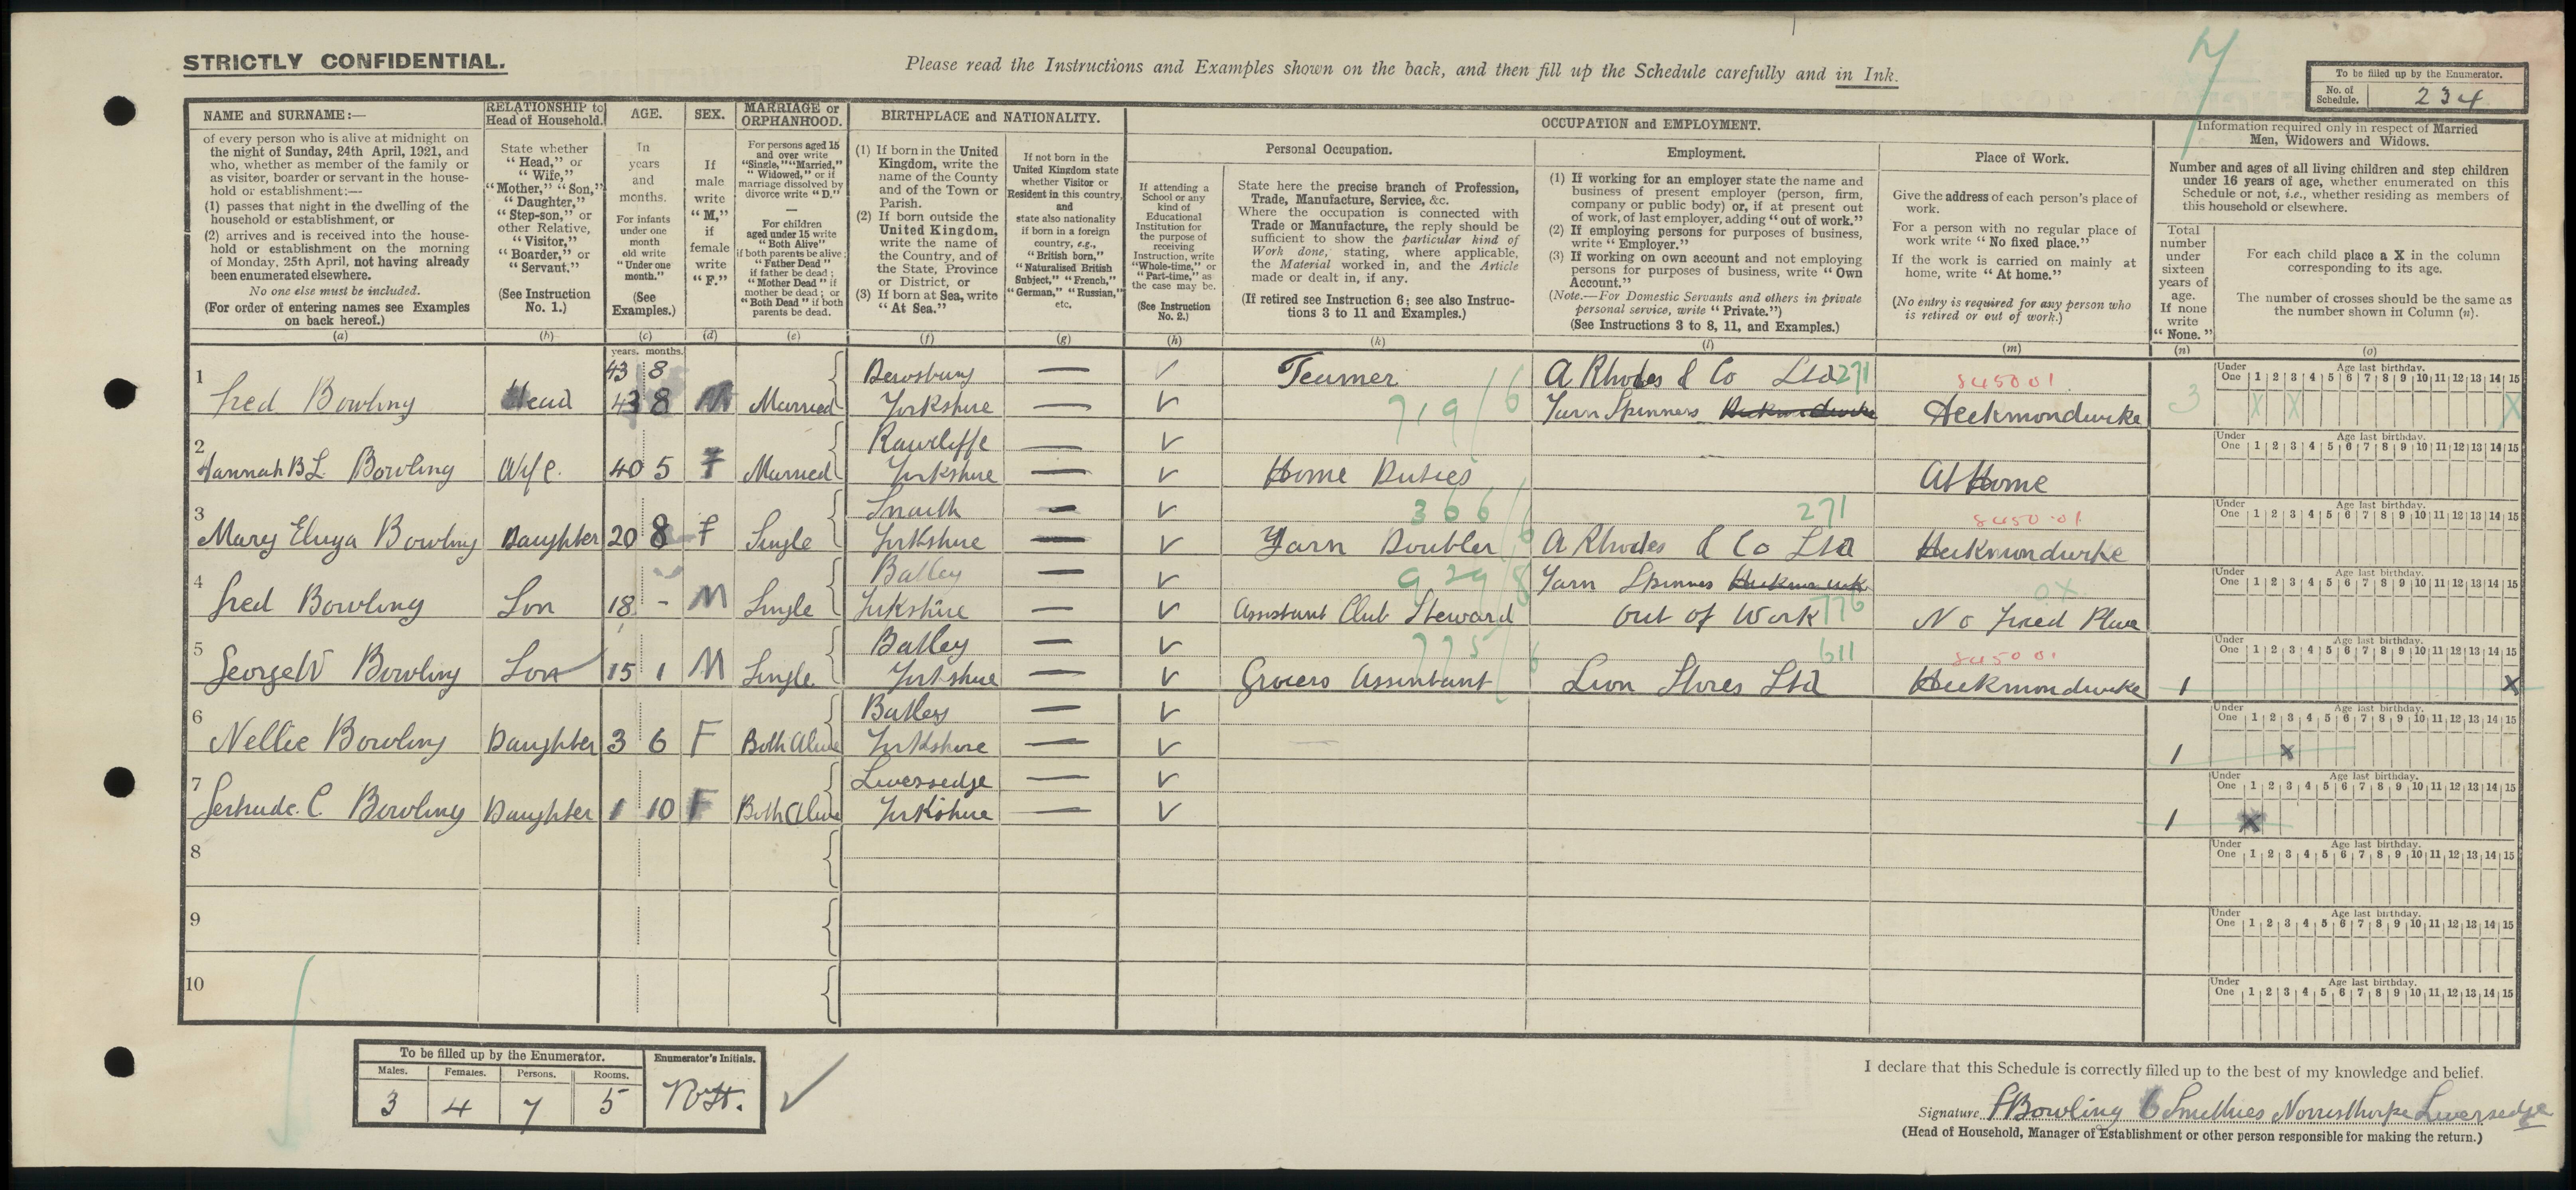 STRICTLY CONFIDENTIAL.
Please read the Instructions and Examples shown on the back, and then fill up the Schedule carefully and in Ink.
To be filled up by the Enumerator.
No. of Schedule. 234
NAME and SURNAME:—
of every person who is alive at midnight on
the night of Sunday, 24th April, 1921, and
who, whether as member of the family or
as visitor, boarder or servant in the house-
hold or establishment:—
(1) passes that night in the dwelling of the
household or establishment, or
(2) arrives and is received into the house-
hold or establishment on the morning
of Monday, 25th April, not having already
been enumerated elsewhere.
No one else must be included.
(For order of entering names see Examples
on back hereof.)
(a)
RELATIONSHIP to
Head of Household.
State whether
"Head," or
"Wife,"
"Mother," "Son,"
"Daughter,"
"Step-son," or
other Relative,
"Visitor,"
"Boarder," or
"Servant."
(See Instruction
No. 1.)
(b)
AGE.
In
years
and
months.
For infants
under one
month
old write
"Under one
month."
(See
Examples.)
(c)
years. months.
SEX.
If
male
write
"M,"
if
female
write
"F."
(d)
MARRIAGE or
ORPHANHOOD.
For persons aged 15
and over write
"Single," "Married,"
"Widowed," or if
marriage dissolved by
divorce write "D."
—
For children
aged under 15 write
"Both Alive"
if both parents be alive;
"Father Dead"
if father be dead;
"Mother Dead" if
mother be dead; or
"Both Dead" if both
parents be dead.
(e)
BIRTHPLACE and NATIONALITY.
(1) If born in the United
Kingdom, write the
name of the County
and of the Town or
Parish.
(2) If born outside the
United Kingdom,
write the name of
the Country, and of
the State, Province
or District, or
(3) If born at Sea, write
"At Sea."
(f)
If not born in the
United Kingdom state
whether Visitor or
Resident in this country,
and
state also nationality
if born in a foreign
country, e.g.,
"British born,"
"Naturalised British
Subject," "French,"
"German," "Russian,"
etc.
(g)
OCCUPATION and EMPLOYMENT.
If attending a
School or any
kind of
Educational
Institution for
the purpose of
receiving
Instruction, write
"Whole-time," or
"Part-time," as
the case may be.
(See Instruction
No. 2.)
(h)
Personal Occupation.
State here the precise branch of Profession,
Trade, Manufacture, Service, &c.
Where the occupation is connected with
Trade or Manufacture, the reply should be
sufficient to show the particular kind of
Work done, stating, where applicable,
the Material worked in, and the Article
made or dealt in, if any.
(If retired see Instruction 6; see also Instruc-
tions 3 to 11 and Examples.)
(k)
Employment.
(1) If working for an employer state the name and
business of present employer (person, firm,
company or public body) or, if at present out
of work, of last employer, adding "out of work."
(2) If employing persons for purposes of business,
write "Employer."
(3) If working on own account and not employing
persons for purposes of business, write "Own
Account."
(Note.—For Domestic Servants and others in private
personal service, write "Private.")
(See Instructions 3 to 8, 11, and Examples.)
(l)
Place of Work.
Give the address of each person's place of
work.
For a person with no regular place of
work write "No fixed place."
If the work is carried on mainly at
home, write "At home."
(No entry is required for any person who
is retired or out of work.)
(m)
Information required only in respect of Married
Men, Widowers and Widows.
Number and ages of all living children and step children
under 16 years of age, whether enumerated on this
Schedule or not, i.e., whether residing as members of
this household or elsewhere.
Total
number
under
sixteen
years of
age.
If none
write
"None."
(n)
For each child place a X in the column
corresponding to its age.
The number of crosses should be the same as
the number shown in Column (n).
(o)
43 8 Dewsbury — ✓ Teamer A Rhodes & Co Ltd 271 845001
1 Fred Bowling Head 43 8 M Married Yorkshire — ✓ 719/6 Yarn Spinners Heckmondwike Heckmondwike 3 X X X
Under One 1 2 3 4 5 6 7 8 9 10 11 12 13 14 15 Age last birthday.
Rawcliffe — ✓
2 Hannah B L Bowling Wife. 40 5 F Married Yorkshire — ✓ Home Duties At Home
Under One 1 2 3 4 5 6 7 8 9 10 11 12 13 14 15 Age last birthday.
Snaith — ✓ 366/6 271 845001
3 Mary Eliza Bowling Daughter 20 8 F Single Yorkshire — ✓ Yarn Doubler A Rhodes & Co Ltd Heckmondwike
Under One 1 2 3 4 5 6 7 8 9 10 11 12 13 14 15 Age last birthday.
Batley — ✓ 929/8 Yarn Spinners Heckmondwike OX
4 Fred Bowling Son 18 - M Single Yorkshire — ✓ Assistant Club Steward out of Work 776 No Fixed Place
Under One 1 2 3 4 5 6 7 8 9 10 11 12 13 14 15 Age last birthday.
Batley — ✓ 775/6 611 845001
5 George W Bowling Son 15 1 M Single Yorkshire — ✓ Grocers Assistant Lion Stores Ltd Heckmondwike 1 X
Under One 1 2 3 4 5 6 7 8 9 10 11 12 13 14 15 Age last birthday.
Batley — ✓
6 Nellie Bowling Daughter 3 6 F Both Alive Yorkshire — ✓ 1 X
Under One 1 2 3 4 5 6 7 8 9 10 11 12 13 14 15 Age last birthday.
Liversedge — ✓
7 Gertrude. C. Bowling Daughter 1 10 F Both Alive Yorkshire — ✓ 1 X
Under One 1 2 3 4 5 6 7 8 9 10 11 12 13 14 15 Age last birthday.
8
Under One 1 2 3 4 5 6 7 8 9 10 11 12 13 14 15 Age last birthday.
9
Under One 1 2 3 4 5 6 7 8 9 10 11 12 13 14 15 Age last birthday.
10
Under One 1 2 3 4 5 6 7 8 9 10 11 12 13 14 15 Age last birthday.
To be filled up by the Enumerator. Enumerator's Initials.
Males. Females. Persons. Rooms.
3 4 7 5
I declare that this Schedule is correctly filled up to the best of my knowledge and belief.
Signature F Bowling 6 Smithies Norristhorpe Liversedge
(Head of Household, Manager of Establishment or other person responsible for making the return.)